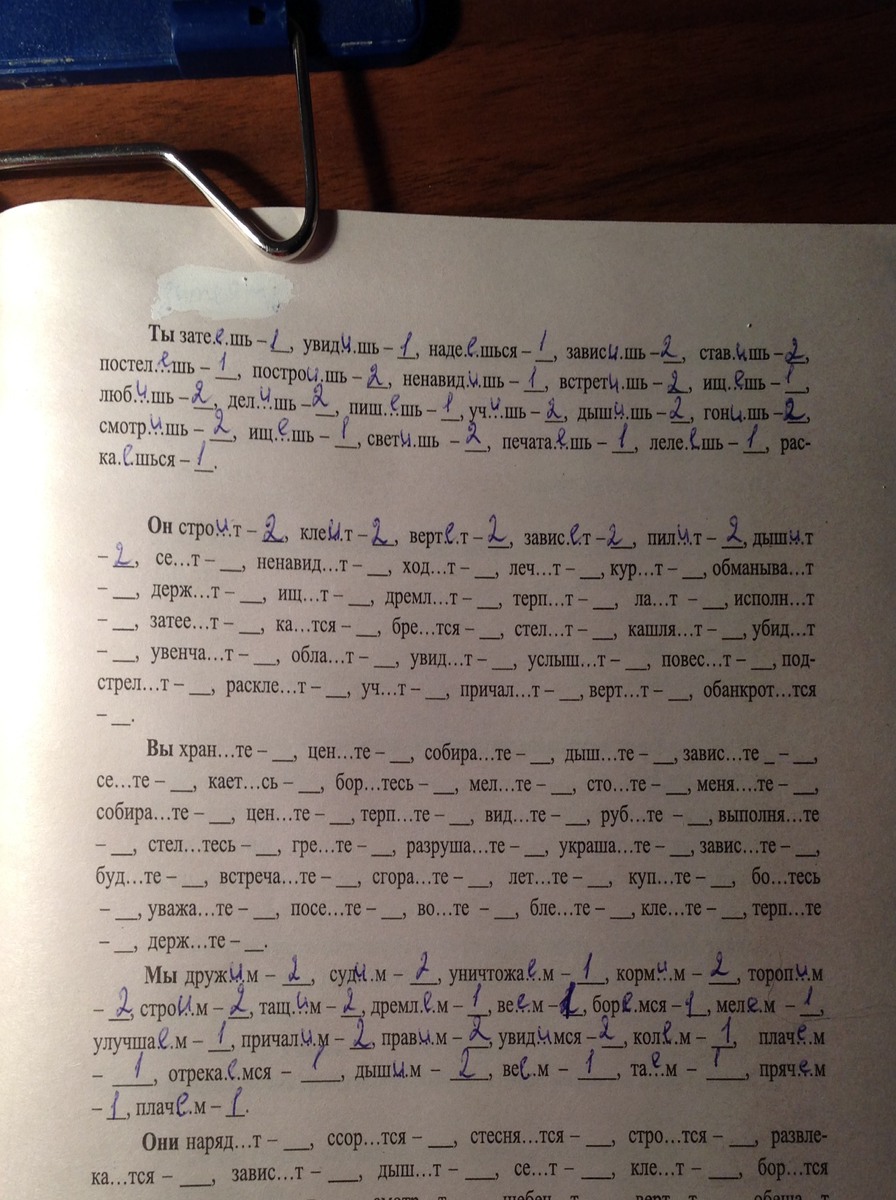 Ты зате.е.шь – 1, увид.и.шь – 1, наде.е.шься – 1, завис.и.шь – 2, став.и.шь – 2,
постел.е.шь – 1, постро.и.шь – 2, ненавид.и.шь – 1, встрет.и.шь – 2, ищ.е.шь – 1,
люб.и.шь – 2, дел.и.шь – 2, пиш.е.шь – 1, уч.и.шь – 2, дыш.и.шь – 2, гон.и.шь – 2,
смотр.и.шь – 2, ищ.е.шь – 1, свет.и.шь – 2, печата.е.шь – 1, леле.е.шь – 1, рас-
ка.е.шься – 1.
Он стро.и.т – 2, кле.и.т – 2, верт.е.т – 2, завис.е.т – 2, пил.и.т – 2, дыш.и.т
– 2, се…т – __, ненавид…т – __, ход…т – __, леч…т – __, кур…т – __, обманыва…т
– __, держ…т – __, ищ…т – __, дремл…т – __, терп…т – __, ла…т – __, исполн…т
– __, затее…т – __, ка…тся – __, бре…тся – __, стел…т – __, кашля…т – __, убид…т
– __, увенча…т – __, обла…т – __, увид…т – __, услыш…т – __, повес…т – __, под-
стрел…т – __, раскле…т – __, уч…т – __, причал…т – __, верт…т – __, обанкрот…тся
– __.
Вы хран…те – __, цен…те – __, собира…те – __, дыш…те – __, завис…те _ – __,
се…те – __, кает…сь – __, бор…тесь – __, мел…те – __, сто…те – __, меня….те – __,
собира…те – __, цен…те – __, терп…те – __, вид…те – __, руб…те – __, выполня…те
– __, стел…тесь – __, гре…те – __, разруша…те – __, украша…те – __, завис…те – __,
буд…те – __, встреча…те – __, сгора…те – __, лет…те – __, куп…те – __, бо…тесь
– __, уважа…те – __, посе…те – __, во…те – __, бле…те – __, кле…те – __, терп…те
– __, держ…те – __.
Мы друж.и.м – 2, суд.и.м – 2, уничтожа.е.м – 1, корм.и.м – 2, тороп.и.м
– 2, стро.и.м – 2, тащ.и.м – 2, дремл.е.м – 1, ве.е.м – 1, бор.е.мся – 1, мел.е.м – 1,
улучша.е.м – 1, причал.и.м – 2, прав.и.м – 2, увид.и.мся – 2, кол.е.м – 1, плач.е.м
– 1, отрека.е.мся – 1, дыш.и.м – 2, ве.е.м – 1, та.е.м – 1, пряч.е.м
– 1, плач.е.м – 1.
Они наряд…т – __, ссор…тся – __, стесня…тся – __, стро…тся – __, развле-
ка…тся – __, завис…т – __, дыш…т – __, се…т – __, кле…т – __, бор…тся